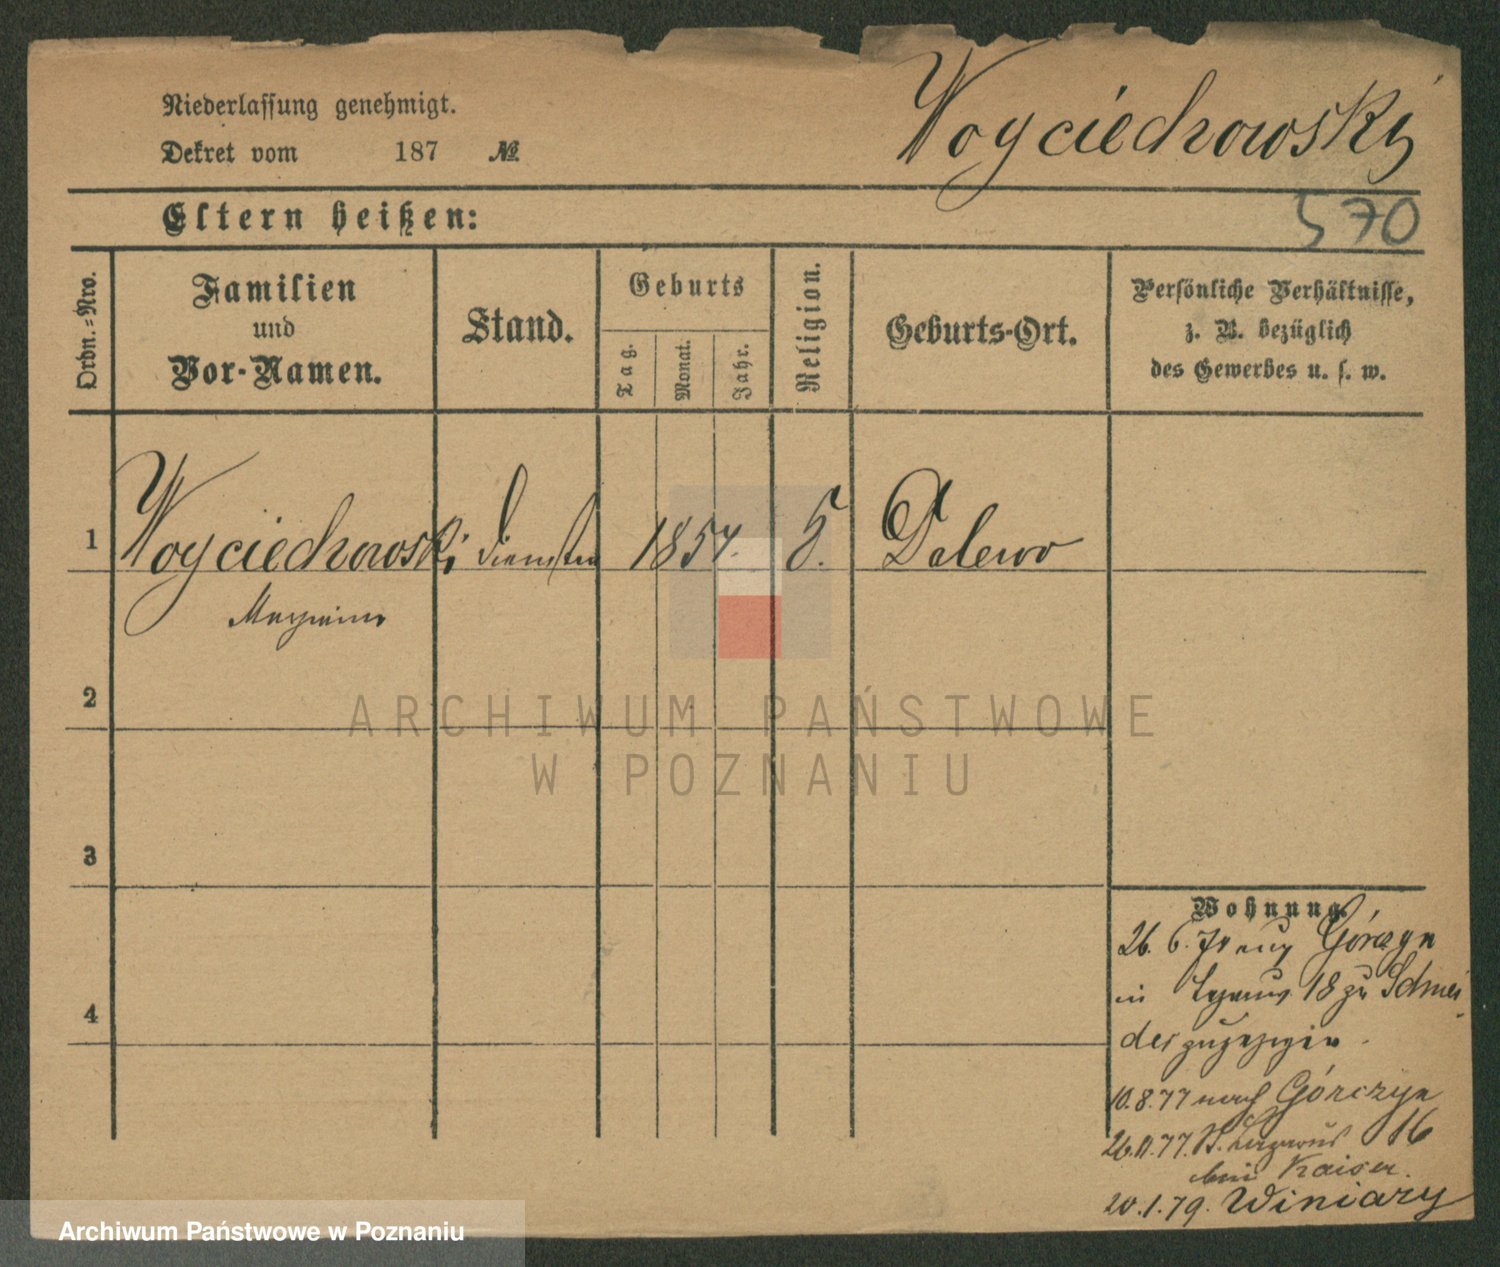 Niederlassung genehmigt.
Dekret vom 187 №
Woyciechowski
Eltern heißen:
570
Ordn.-Nro.
Familien
und
Vor-Namen.
Stand.
Geburts
Tag.
Monat.
Jahr.
Religion.
Geburts-Ort.
Persönliche Verhältnisse,
z. B. bezüglich
des Gewerbes u. s. w.
1 Woyciechowski 1854. Dalewo
2
3
4
Wohnung.
26. 6. Górczyn
in 18 zu Schnei
der zugezogen.
10.8.77 nach Górczyn
26.11.77. St. Lazarus 16
bei Kaiser.
20.1.79. Winiary
ARCHIWUM PAŃSTWOWE
W POZNANIU
Archiwum Państwowe w Poznaniu